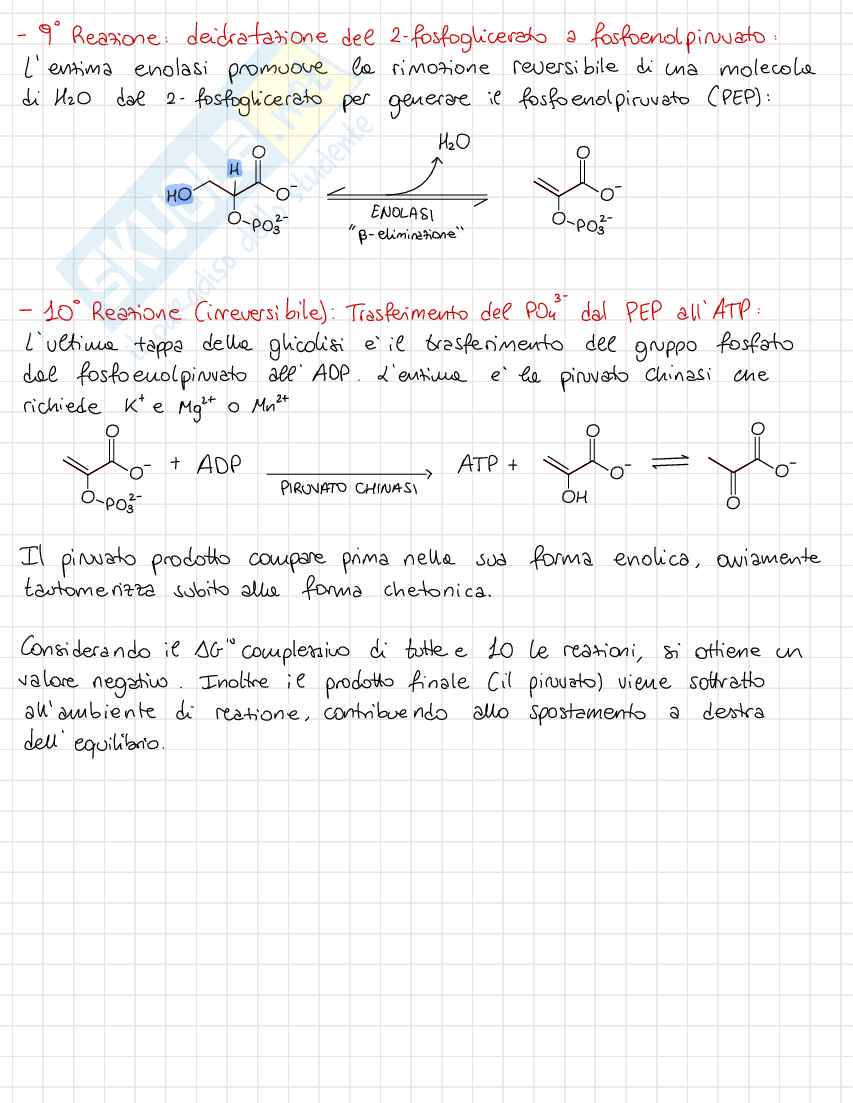 - 9° Reazione: deidratazione del 2-fosfoglicerato a fosfoenolpiruvato:
L'enzima enolasi promuove la rimozione reversibile di una molecola
di H2O dal 2-fosfoglicerato per generare il fosfoenolpiruvato (PEP):
H2O
H O O
HO O⁻ O⁻
O-PO₃²⁻ ENOLASI O-PO₃²⁻
"β-eliminazione"
- 10° Reazione (irreversibile): Trasferimento del PO₄³⁻ dal PEP all'ATP:
L'ultima tappa della glicolisi e' il trasferimento del gruppo fosfato
dal fosfoenolpiruvato all'ADP. L'enzima e' la piruvato chinasi che
richiede K⁺ e Mg²⁺ o Mn²⁺
O O O
O⁻ + ADP ATP + O⁻ O⁻
O-PO₃²⁻ PIRUVATO CHINASI OH O
Il piruvato prodotto compare prima nella sua forma enolica, ovviamente
tautomerizza subito alla forma chetonica.
Considerando il ΔG'° complessivo di tutte e 10 le reazioni, si ottiene un
valore negativo. Inoltre il prodotto finale (il piruvato) viene sottratto
all'ambiente di reazione, contribuendo allo spostamento a destra
dell'equilibrio.
SKUOLA.net
il paradiso dello studente